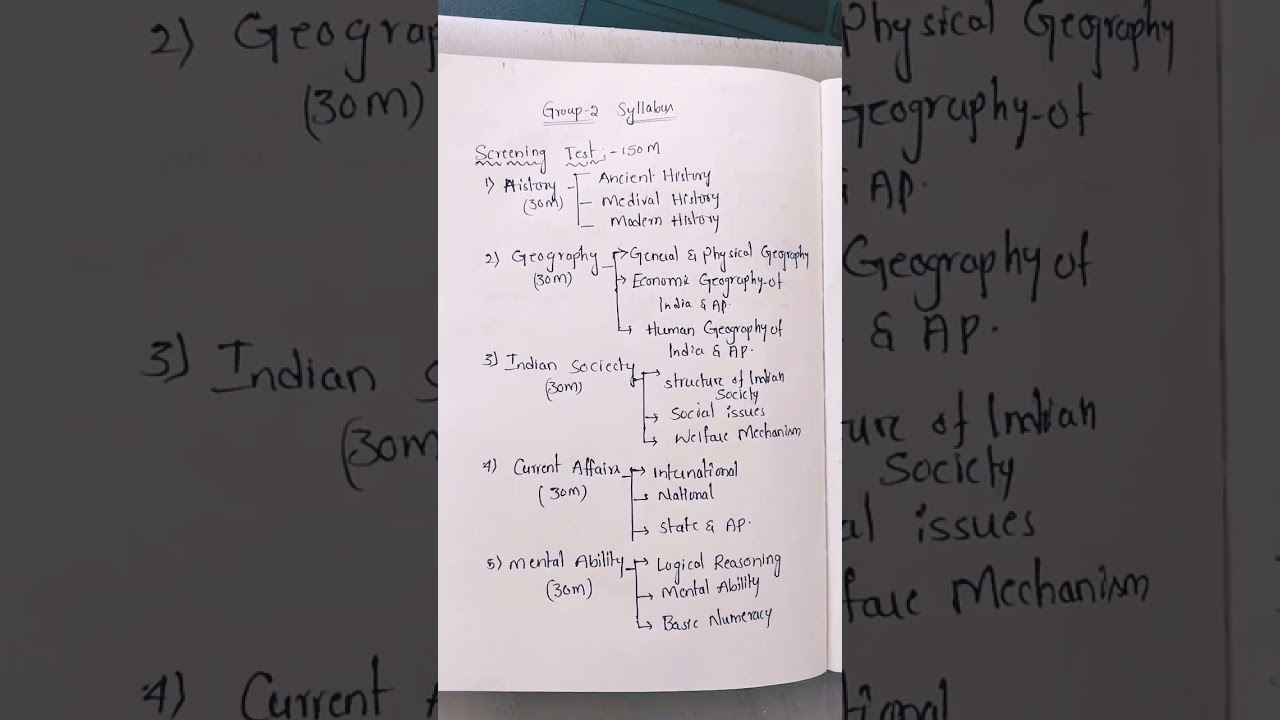 Group-2 Syllabus
Screening Test :- 150M
1) History (30M)
Ancient History
Medival History
Modern History
2) Geography (30M)
General & Physical Geography
Economic Geography of
India & AP.
Human Geography of
India & AP.
3) Indian Society (30M)
Structure of Indian
Society
Social issues
Welfare Mechanism
4) Current Affairs (30M)
International
National
State & AP.
5) Mental Ability (30M)
Logical Reasoning
Mental Ability
Basic Numeracy